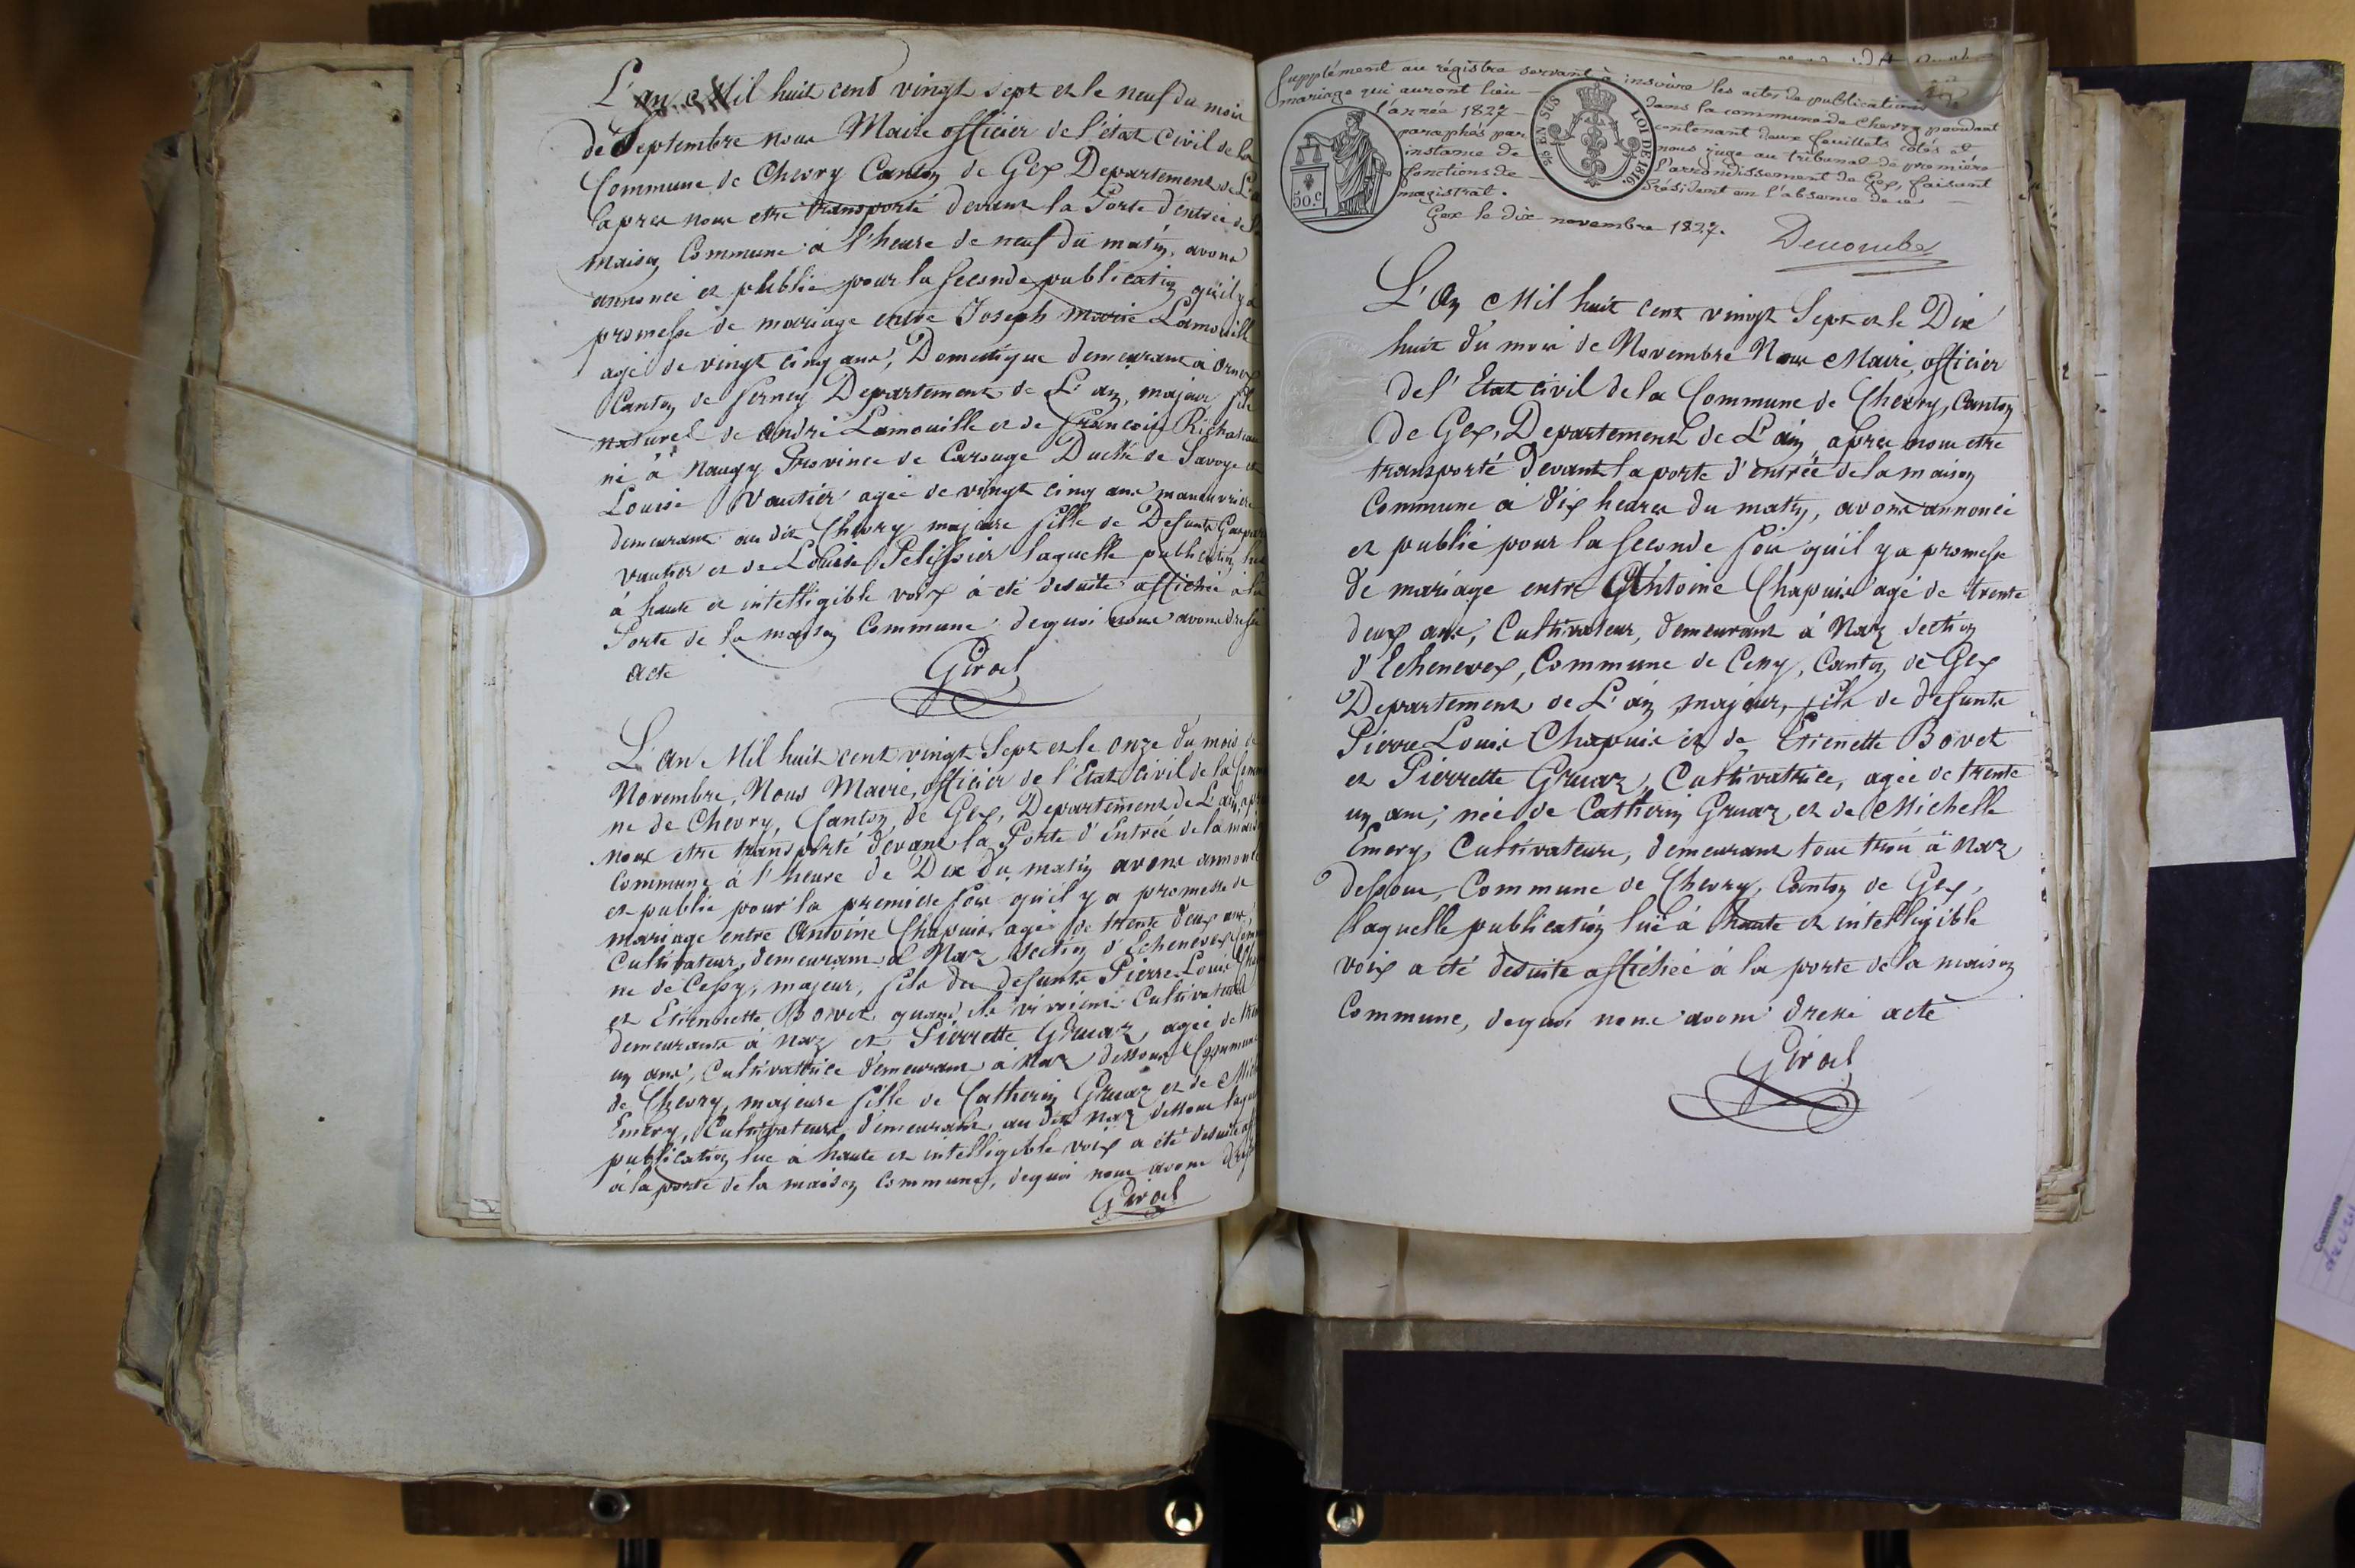 L'an Mil huit cent vingt sept et le neuf du mois
de Septembre nous Maire officier de l'état Civil de la
Commune de Chevry Canton de Gex Departement de L'
apres nous etre transporté devant la Porte d'entrée de
maison Commune à l'heure de neuf du matin, avons
annoncé et publié pour la seconde publication qu'il y a
promesse de mariage entre Joseph marie Lamouille
agé de vingt cinq ans, Domestique demeurant à Ornex
Canton de ferney Departement de L'ain, majeur fils
naturel de André Lamouille et de françoise
né à Nangy Province de Carouge Duché de Savoye et
Louise Vautier agée de vingt cinq ans manœuvrière
demeurant au dit Chevry majeure fille de Defunts Gaspar
Vautier et de Louise Pelissier laquelle publication lue
à haute et intelligible voix à eté desuite affichée à la
Porte de la maison Commune dequoi nous avons dressé
acte
Girod
L'an Mil huit cent vingt Sept et le onze du mois de
Novembre, Nous Maire, officier de l'Etat Civil de la Commu
ne de Chevry, Canton de Gex, Departement de L'ain, apr
nous etre transporté devant la Porte d'Entrée de la mais
Commune à l'heure de Dix du matin avons annoncé
et publié pour la premiere fois qu'il y a promesse de
mariage entre Antoine Chapuis agé de trente deux ans,
Cultivateur, demeurant à Naz Section d'Echenevex Commu
ne de Cessy, majeur, fils du defunts Pierre Louis Cha
et Etiennette Bovet quand ils vivoient Cultivateurs
demeurants à Naz et Pierrette Gruaz, agée de tren
un ans, Cultivatrice demeurant à Naz dessous Commune
de Chevry, majeure fille de Catherin Gruaz et de Mich
Emery, Cultivateurs demeurants au dit Naz dessous laque
publication lue à haute et intelligible voix a été desuite aff
à la porte de la maison Commune, dequoi nous avons dressé
Girod
Supplément au régistre servant à inscrire les actes de publications de
mariage qui auront lieu dans la commune de Chevry pendant
l'année 1827 contenant deux feuillets cotés et
paraphés par nous juge au tribunal de première
instance de l'arrondissement de Gex, faisant
fonctions de Président en l'absence de ce
magistrat.
Gex le dix novembre 1827.
50.C
5/10 EN SUS
LOI DE 1816.
L'an Mil huit cent vingt Sept et le Dix
huit du mois de Novembre Nous Maire, officier
de l'Etat civil de la Commune de Chevry, Canton
De Gex, Departement de L'ain, apres nous etre
transporté devant la porte d'entrée de la maison
Commune à dix heures du matin, avons annoncé
et publié pour la seconde fois qu'il y a promesse
de mariage entre Antoine Chapuis agé de trente
deux ans, Cultivateur, demeurant à Naz Section
d'Echenevex, Commune de Cessy, Canton de Gex
Departement de L'ain majeur, fils de defunts
Pierre Louis Chapuis et de Etienette Bovet
et Pierrette Gruaz, Cultivatrice, agée de trente
un ans, née de Catherin Gruaz, et de Michelle
Emery, Cultivateurs, demeurant tous trois à Naz
dessous, Commune de Chevry, Canton de Gex,
laquelle publication lüe à haute et intelligible
voix a été desuite affichée à la porte de la maison
Commune, dequoi nous avons dressé acte
Girod
Commune